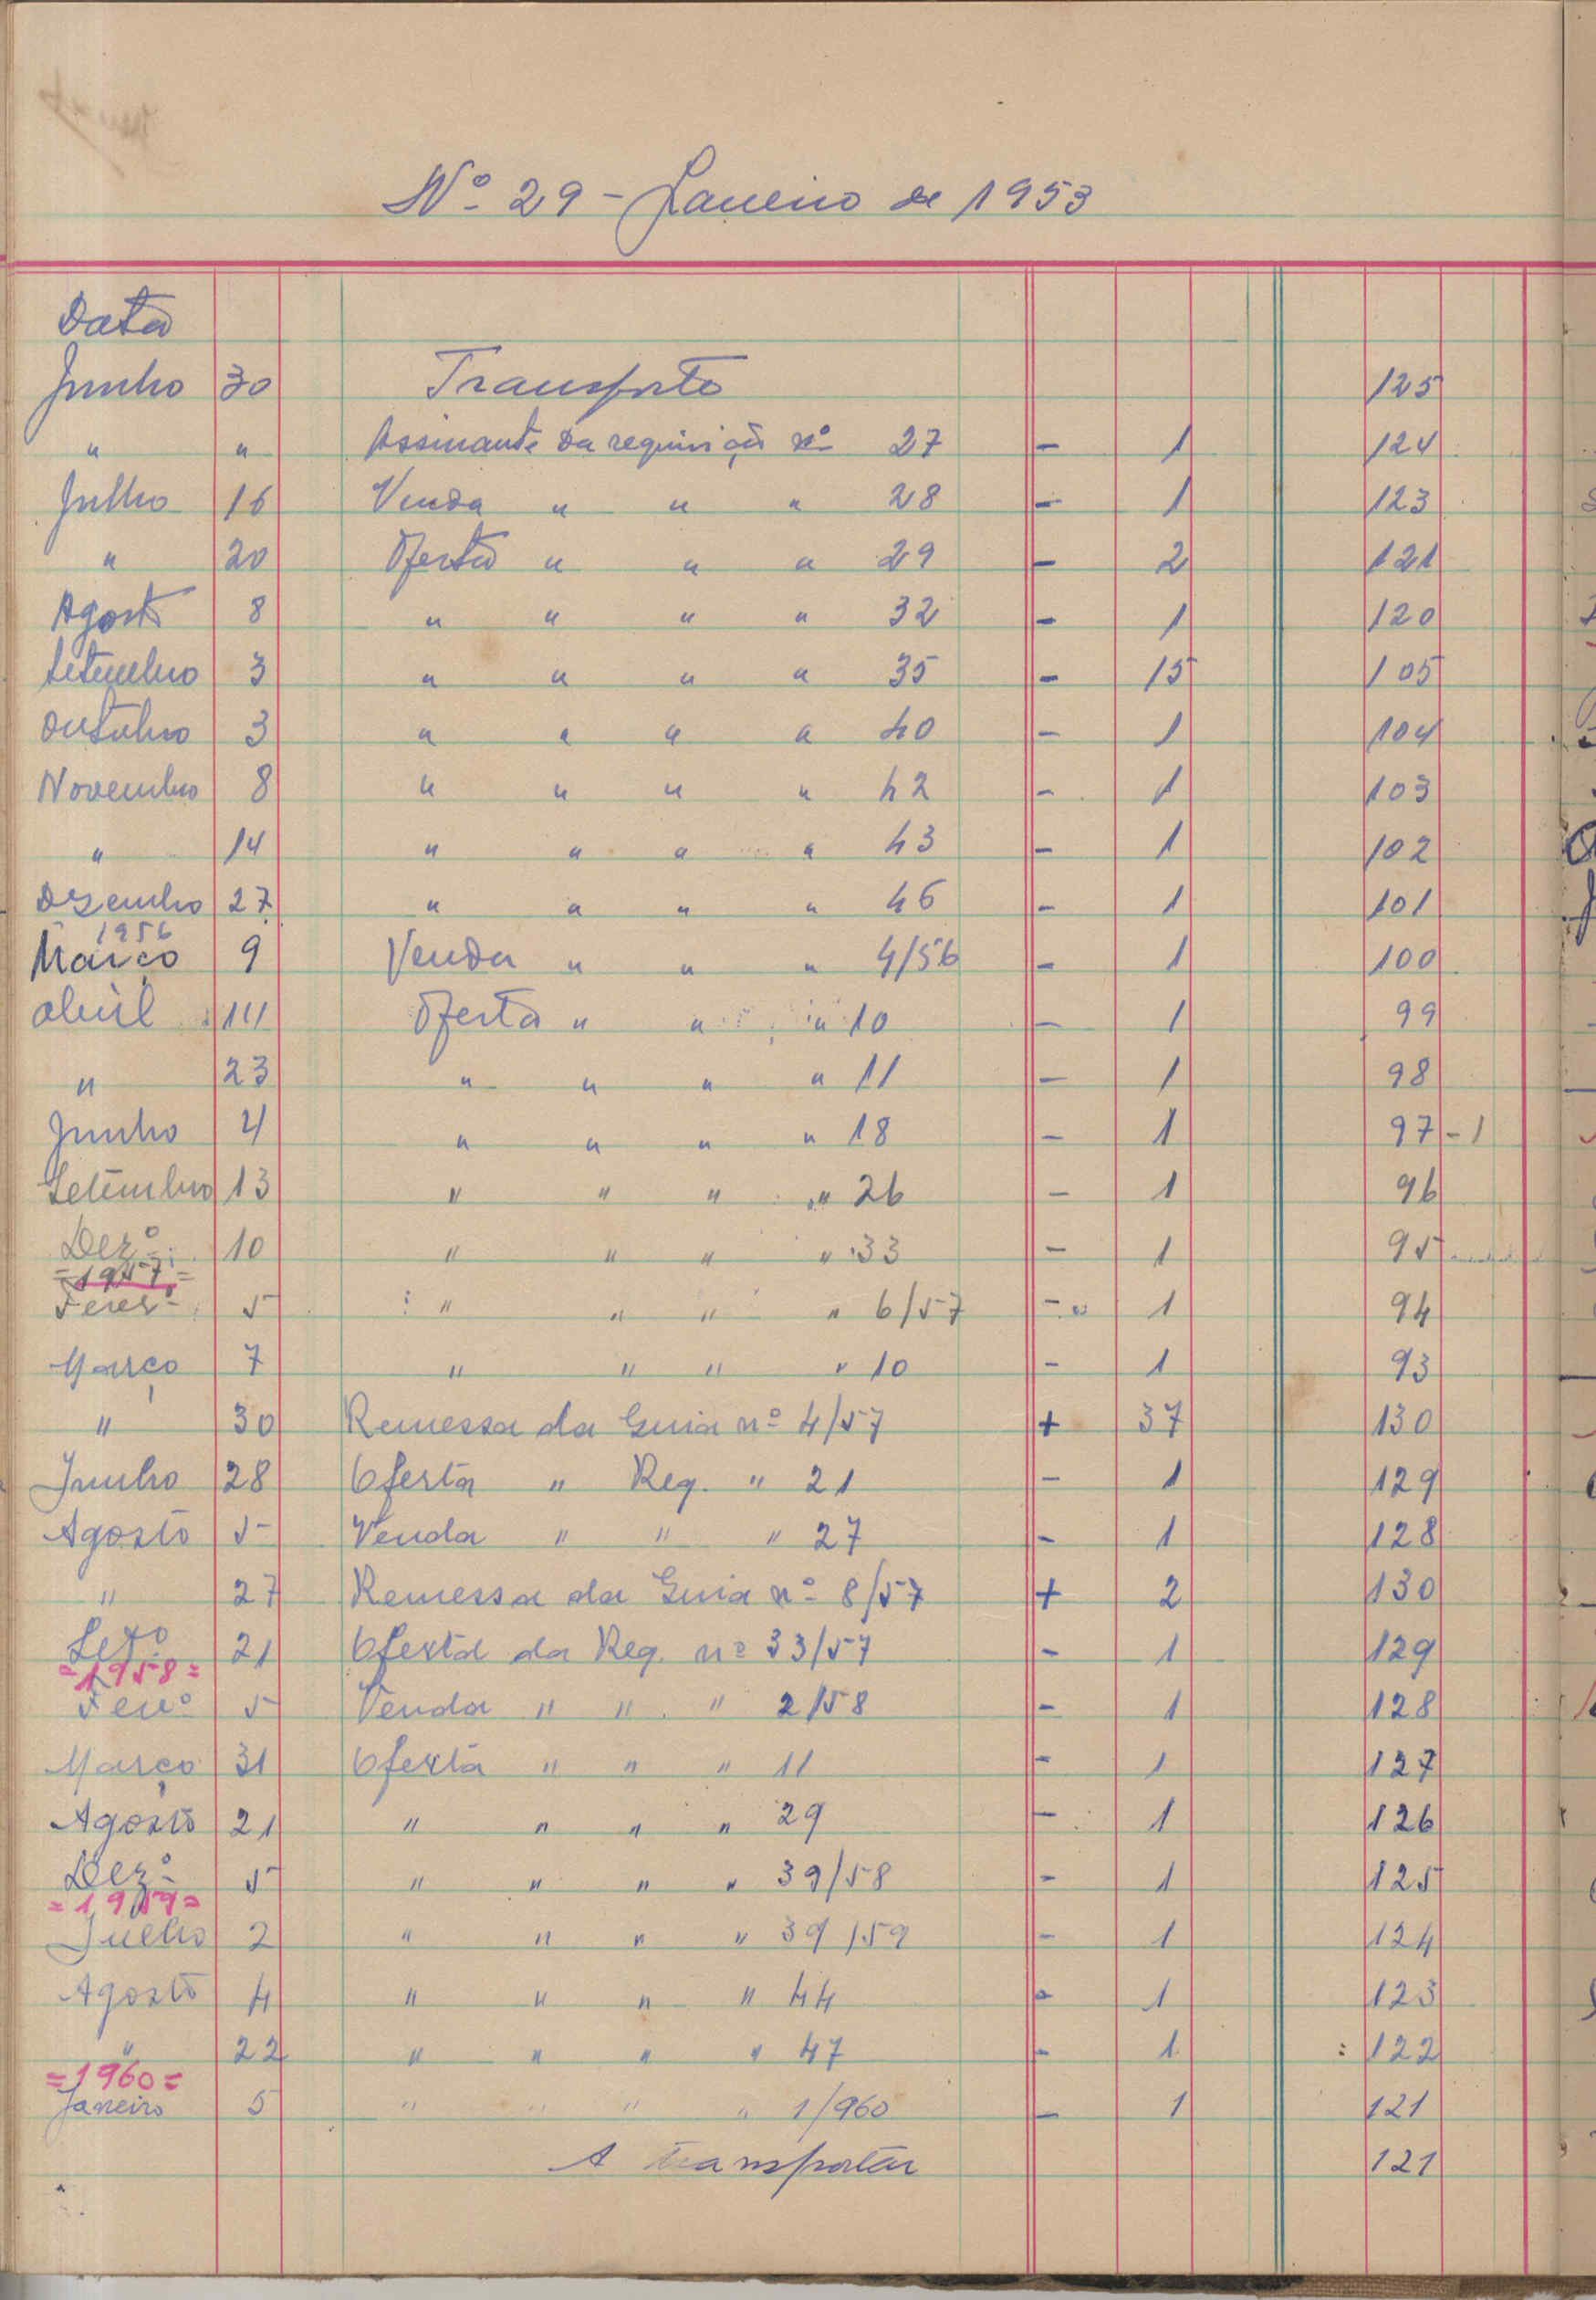 Nº 29 - Janeiro de 1953
Data
Junho 30 Transporte 125
" " Assinante da requisição nº 27 - 1 124
Julho 16 Venda " " " 28 - 1 123
" 20 Oferta " " " 29 - 2 121
Agosto 8 " " " " 32 - 1 120
Setembro 3 " " " " 35 - 15 105
Outubro 3 " " " " 40 - 1 104
Novembro 8 " " " " 42 - 1 103
" 14 " " " " 43 - 1 102
Dezembro 27 " " " " 46 - 1 101
1956
Março 9 Venda " " " 4/56 - 1 100
Abril 14 Oferta " " " 10 - 1 99
" 23 " " " " 11 - 1 98
Junho 4 " " " " 18 - 1 97 - 1
Setembro 13 " " " " 26 - 1 96
Dezº 10 " " " " 33 - 1 95
=1957=
Feverº 5 " " " " 6/57 - 1 94
Março 7 " " " " 10 - 1 93
" 30 Remessa da Guia nº 4/57 + 37 130
Junho 28 Oferta " Req. " 21 - 1 129
Agosto 5 Venda " " " 27 - 1 128
" 27 Remessa da Guia nº 8/57 + 2 130
Setº 21 Oferta da Req. nº 33/57 - 1 129
=1958=
Fevº 5 Venda " " " 2/58 - 1 128
Março 31 Oferta " " " 11 - 1 127
Agosto 21 " " " " 29 - 1 126
Dezº 5 " " " " 39/58 - 1 125
=1959=
Julho 2 " " " " 39/59 - 1 124
Agosto 4 " " " " 44 - 1 123
" 22 " " " " 47 - 1 122
=1960=
Janeiro 5 " " " " 1/960 - 1 121
A transportar 121